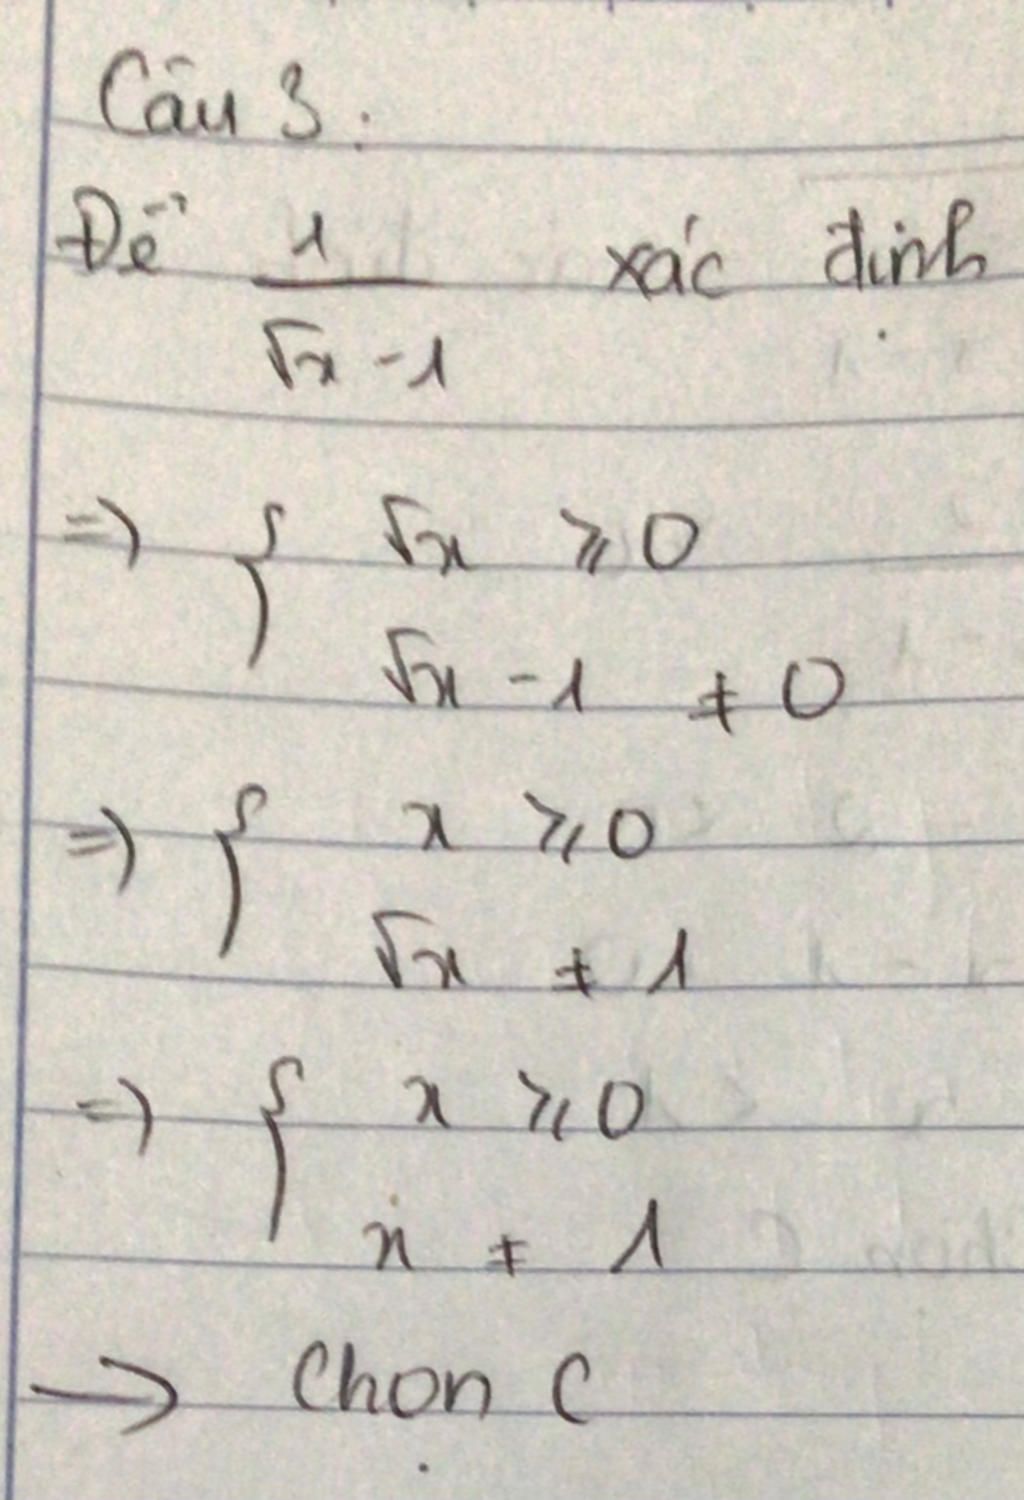 Câu 3:
Để 1/(√x - 1) xác định
=> { √x ⩾ 0
√x - 1 ≠ 0
=> { x ⩾ 0
√x ≠ 1
=> { x ⩾ 0
x ≠ 1
→ Chọn C